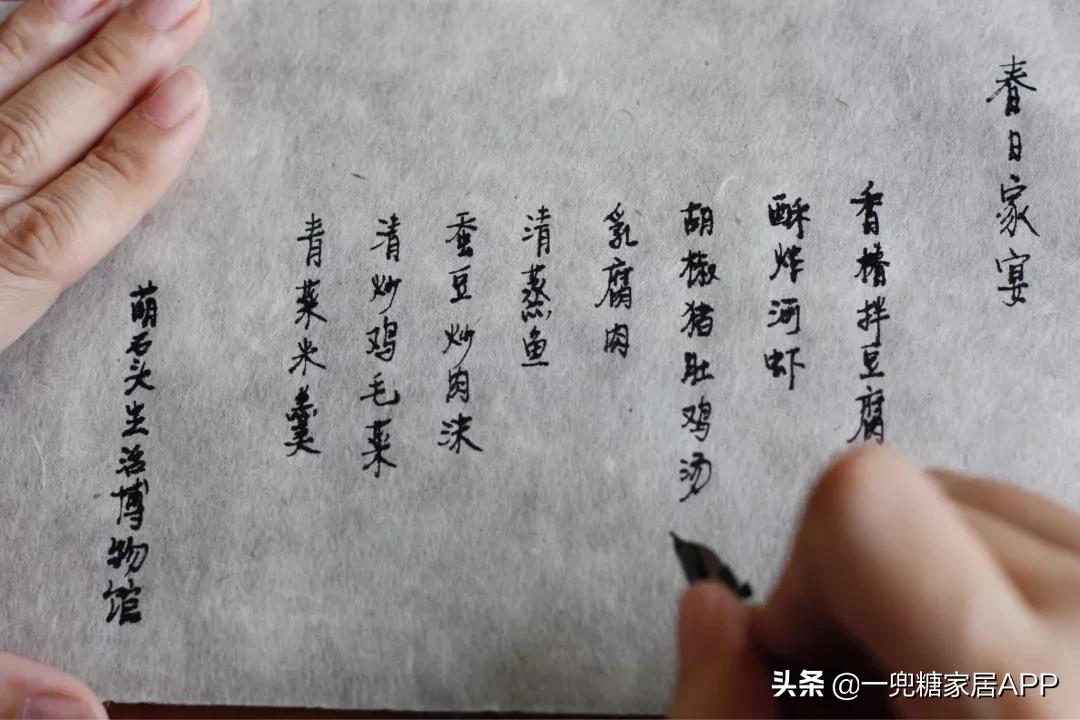 春日家宴
香椿拌豆腐
酥炸河虾
胡椒猪肚鸡汤
乳腐肉
清蒸鱼
蚕豆炒肉沫
清炒鸡毛菜
青菜米羹
萌石头生活博物馆
头条 @一兜糖家居APP